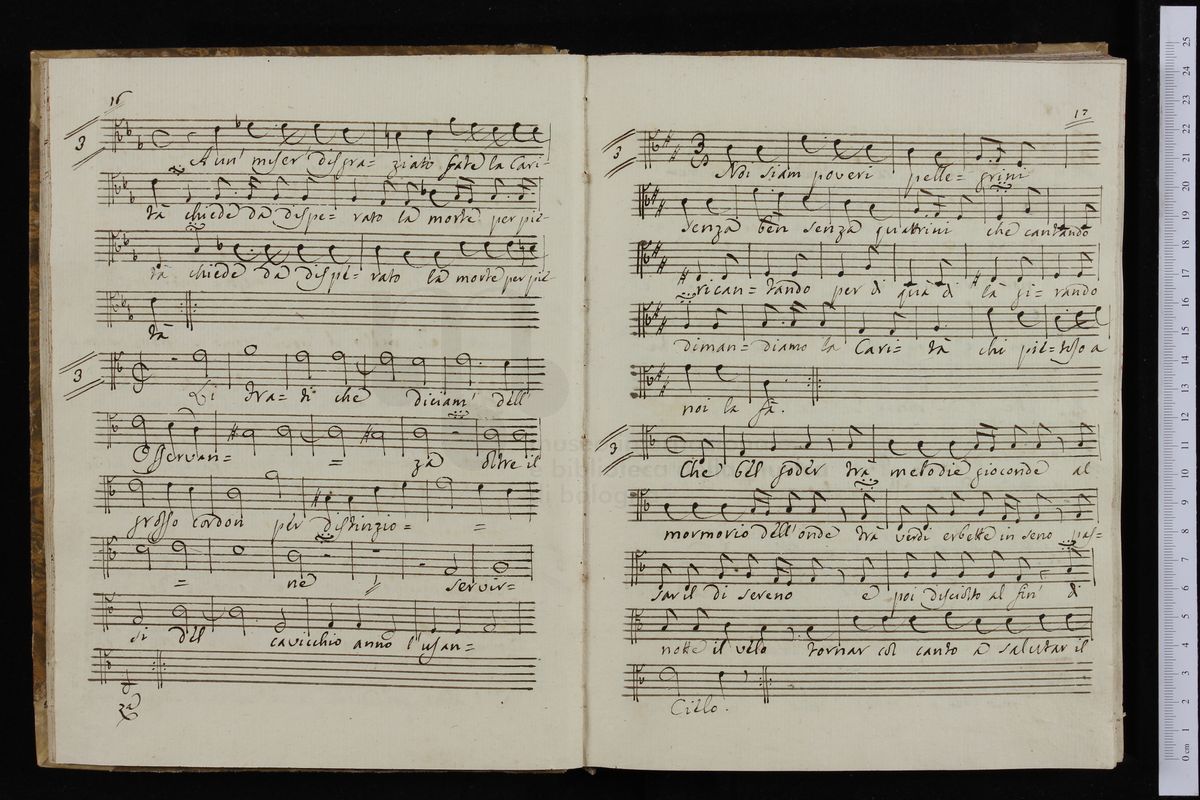 16
3
A un' miser' disgra- ziato fate la Cari-
tà chiede da dispe- rato la morte per pie-
tà chiede da dispe- rato la morte per pie-
tà
3
tra- ti che diciam' dell'
Osservan- = za oltre il
grosso cordon per distinzio- =
= ne servir-
si dell cavicchio anno l'usan-
za
17
3
Noi siam poveri pelle- grini
senza ben senza quattrini che cantando
rican- tando per di quà di là gi- rando
diman- diamo la Cari- tà chi pie- toso a
noi la fà.
3
Che bel goder trà melodie gioconde al
mormorio dell' onde trà verdi erbette in seno pas-
sar il di sereno e poi disciolto al fin' di
notte il velo tornar col canto a salutar il
Cielo.
museo
biblioteca
di bologna
0 cm 1 2 3 4 5 6 7 8 9 10 11 12 13 14 15 16 17 18 19 20 21 22 23 24 25